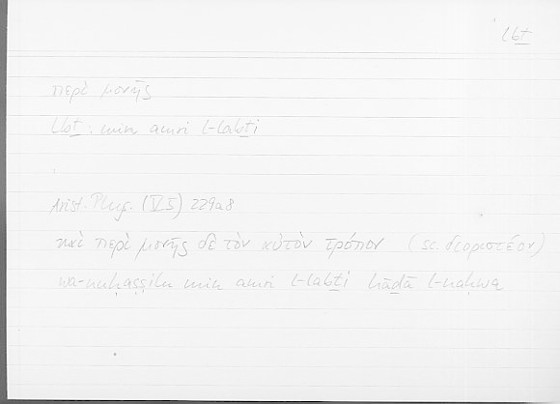 lbṯ
περὶ μονῆς
lbṯ. min amri l-labṯi
Arist. Phys. (V 5) 229a8
καὶ περὶ μονῆς δὲ τὸν αὐτὸν τρόπον (sc. διοριστέον)
wa-nuḥaṣṣilu min amri l-labṯi hāḏā l-naḥwa